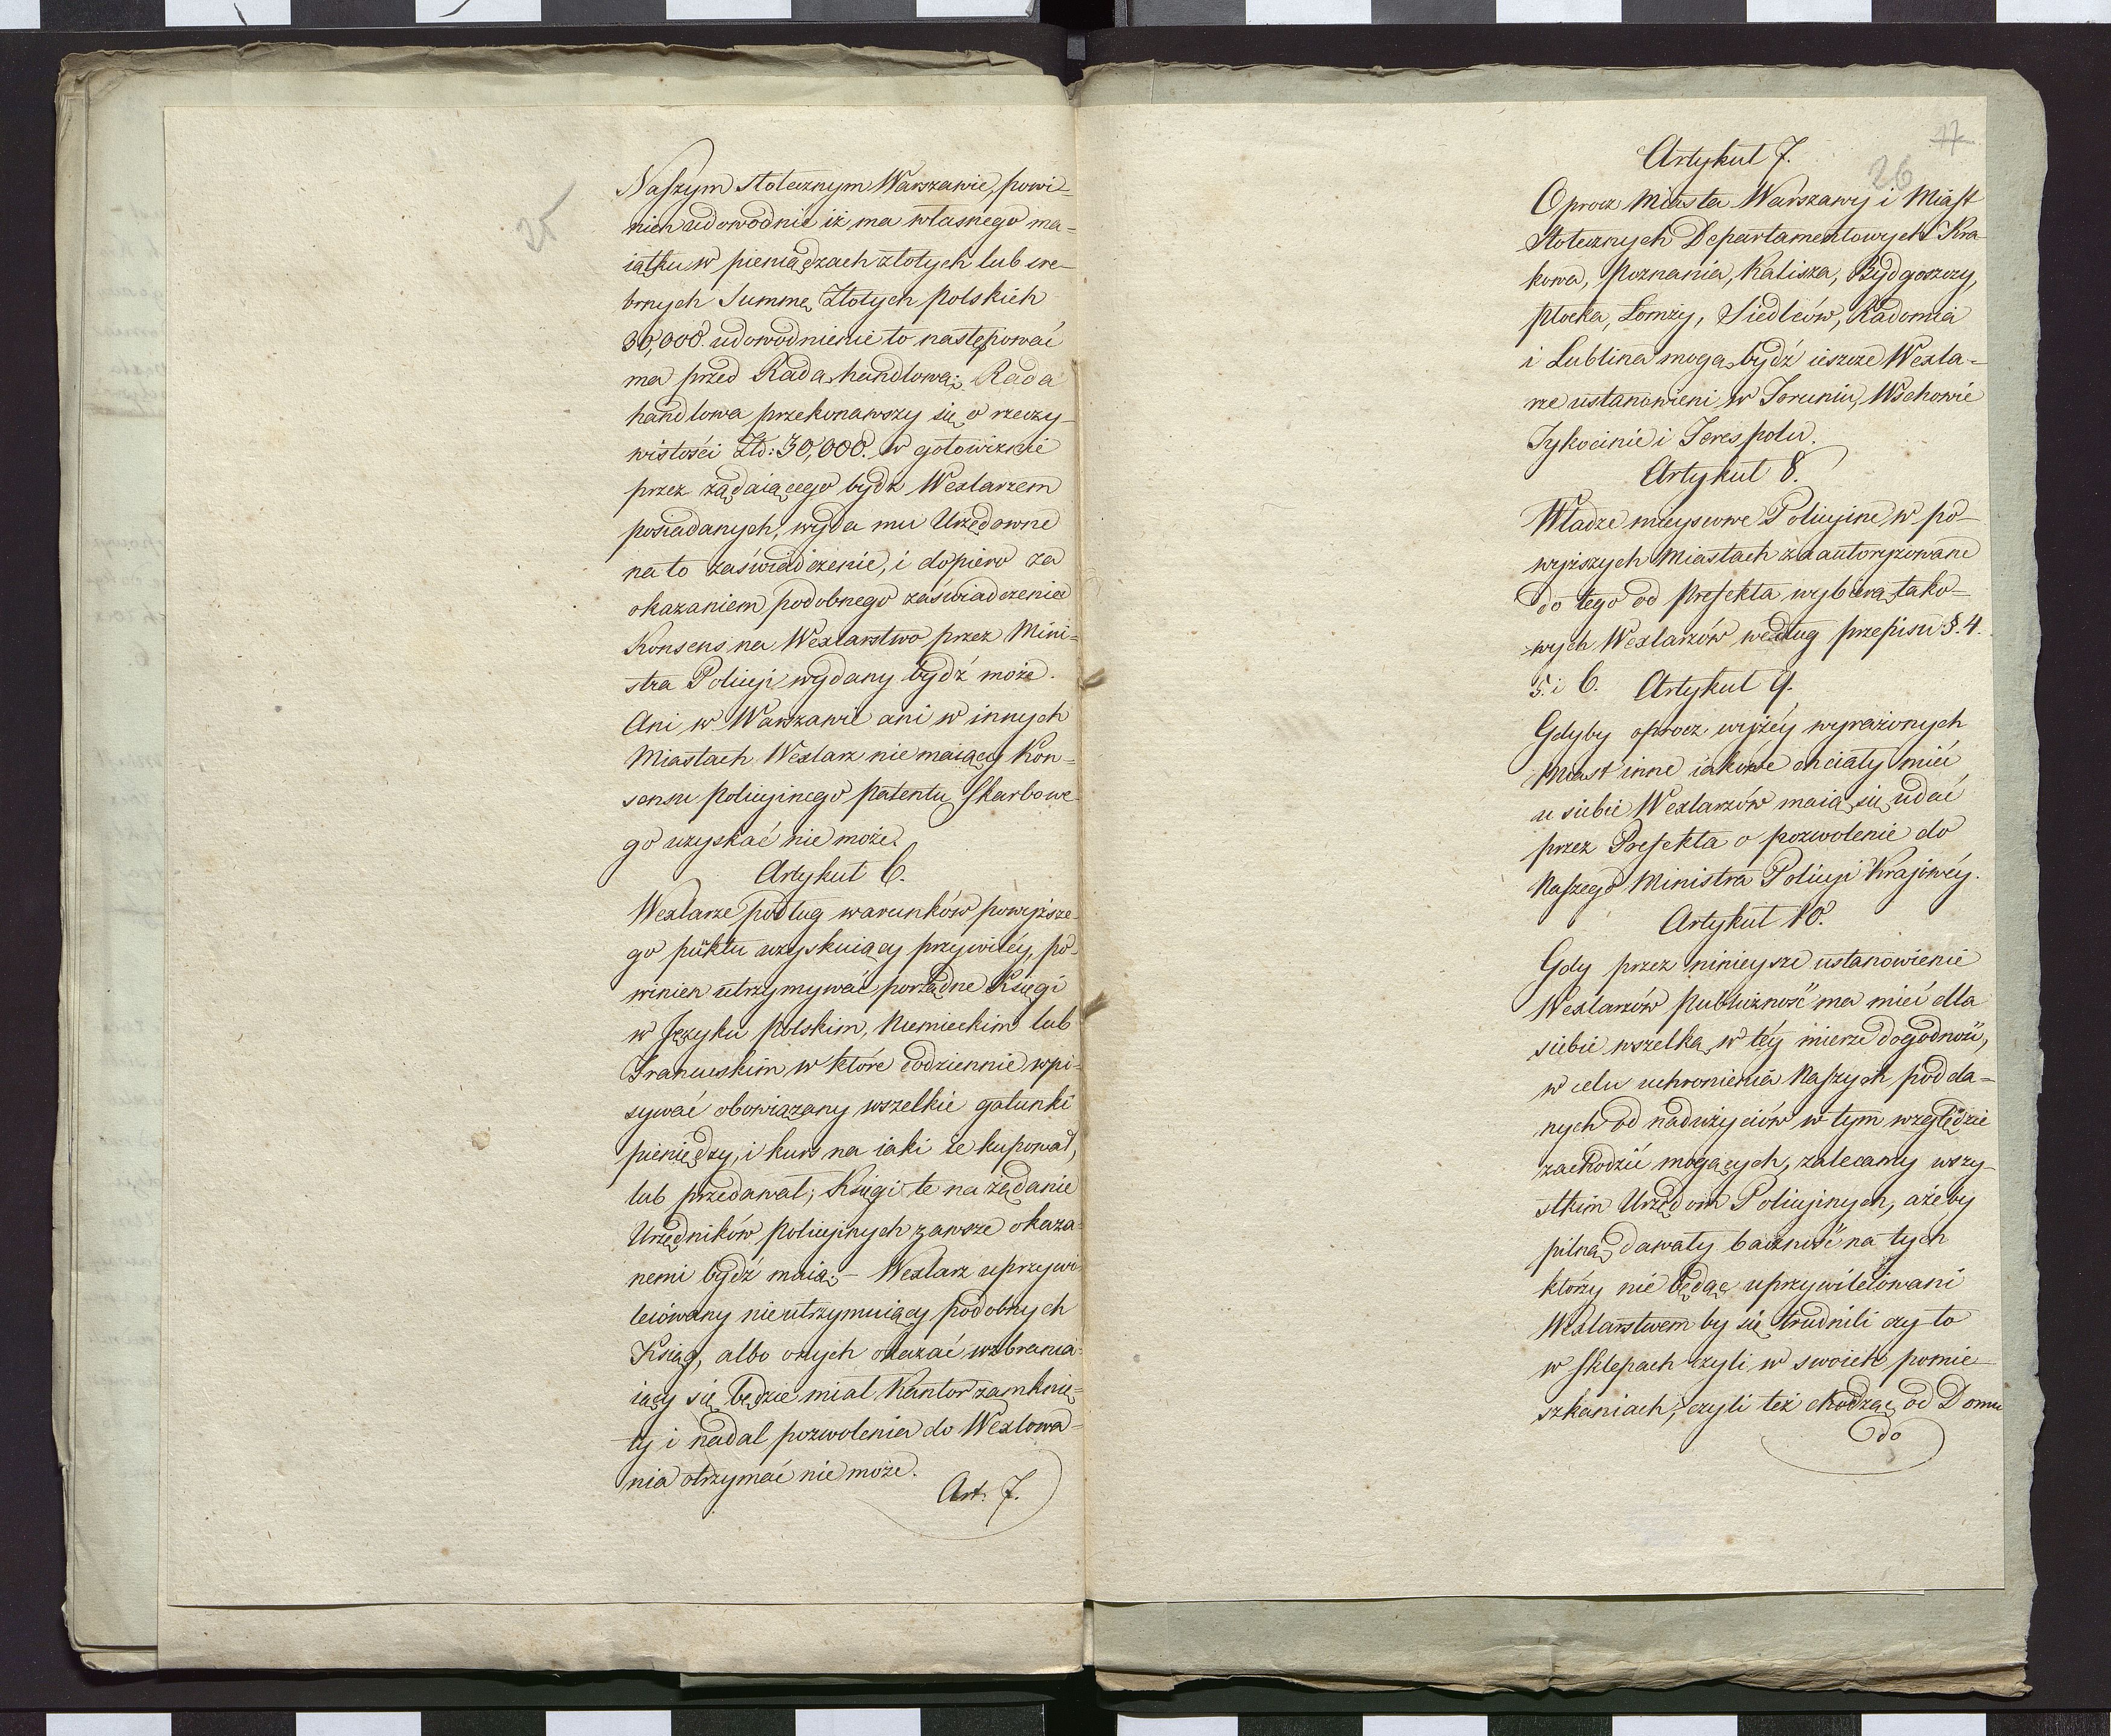 25
Naszym stołecznym Warszawie, powi-
nien udowodnić iż ma własnego ma-
iątku w pieniądzach złotych lub sre-
brnych Summę Złotych polskich
30,000. udowodnienie to następować
ma przed Radą handlową; Rada
handlowa przekonawszy się o rzeczy-
wistości Zło: 30,000. w gotowiznie
przez żądaiącego bydź Wexlarzem
posiadanych, wyda mu Urzędowne
na to zaświadczenie, i dopiero za
okazaniem podobnego zaświadczenia
Konsens na Wexlarstwo przez Mini-
stra Policyi wydany bydź może.
Ani w Warszawie ani w innych
Miastach Wexlarz nie maiący Kon-
sensu policyinego patentu Skarbowe-
go uzyskać nie może.
Artykuł 6.
Wexlarze podług warunków powyższe-
go püktu uzyskuiący przywiléy, po-
winien utrzymywać porządne Księgi
w Języku polskim, Niemieckim lub
Francuskim w które codziennie wpi-
sywać obowiązany wszelkie gatunki
pieniędzy, i kurs na iaki ie kupował,
lub przedawał; Księgi te na żądanie
Urzędników policyinych zawsze okaza-
nemi bydź maią; – Wexlarz uprzywi-
leiowany nieutrzymuiący podobnych
Ksiąg, albo onych okazać wzbrania-
iący się będzie miał Kantor zamknię-
ty i nadal pozwolenia do Wexlowa-
nia otrzymać nie może.
Art. 7.
17
26
Artykuł 7.
Oprocz Miasta Warszawy i Miast
Stołecznych Departamentowych Kra-
kowa, Poznania, Kalisza, Bydgoszczy,
Płocka, Łomży, Siedlców, Radomia
i Lublina mogą bydź ieszcze Wexla-
rze ustanowieni w Toruniu, Wschowie
Tykocinie i Terespolu.
Artykuł 8.
Władze mieyscowe Policyine w po-
wyższych Miastach zaautoryzowane
do tego od Prefekta wybiorą tako-
wych Wexlarzów według przepisu §. 4.
5. i 6. Artykuł 9.
Gdyby oprocz wyżéy wyrażonych
Miast inne iakowe chciały mieć
u siebie Wexlarzów maią się udać
przez Prefekta o pozwolenie do
Naszego Ministra Policyi Krajowéy.
Artykuł 10.
Gdy przez ninieysze ustanowienie
Wexlarzów publiczność ma mieć dla
siebie wszelką w téy mierze dogodność,
w celu uchronienia Naszych podda-
nych od nadużyciów w tym względzie
zachodzić mogących, zalecamy wszy-
stkim Urzędom Policyinych, ażeby
pilną dawały baczność na tych
którzy nie będąc uprzywileiowani
Wexlarstwem by się trudnili czy to
w Sklepach czyli w swoich pomie-
szkaniach, czyli też chodząc od Domu
do